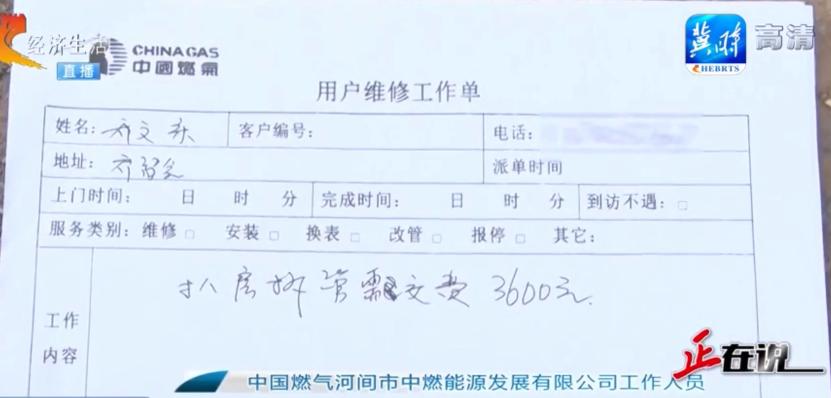 经济生活
直播
CHINAGAS
中國燃氣
冀时
CHEBRTS
高清
用户维修工作单
姓名: 齐文东 客户编号: 电话:
地址: 齐 派单时间
上门时间: 日 时 分 完成时间: 日 时 分 到访不遇: □
服务类别: 维修 □ 安装 □ 换表 □ 改管 □ 报停 □ 其它:
扒房拆管需交费3600元.
工作
内容
正在说
中国燃气河间市中燃能源发展有限公司工作人员